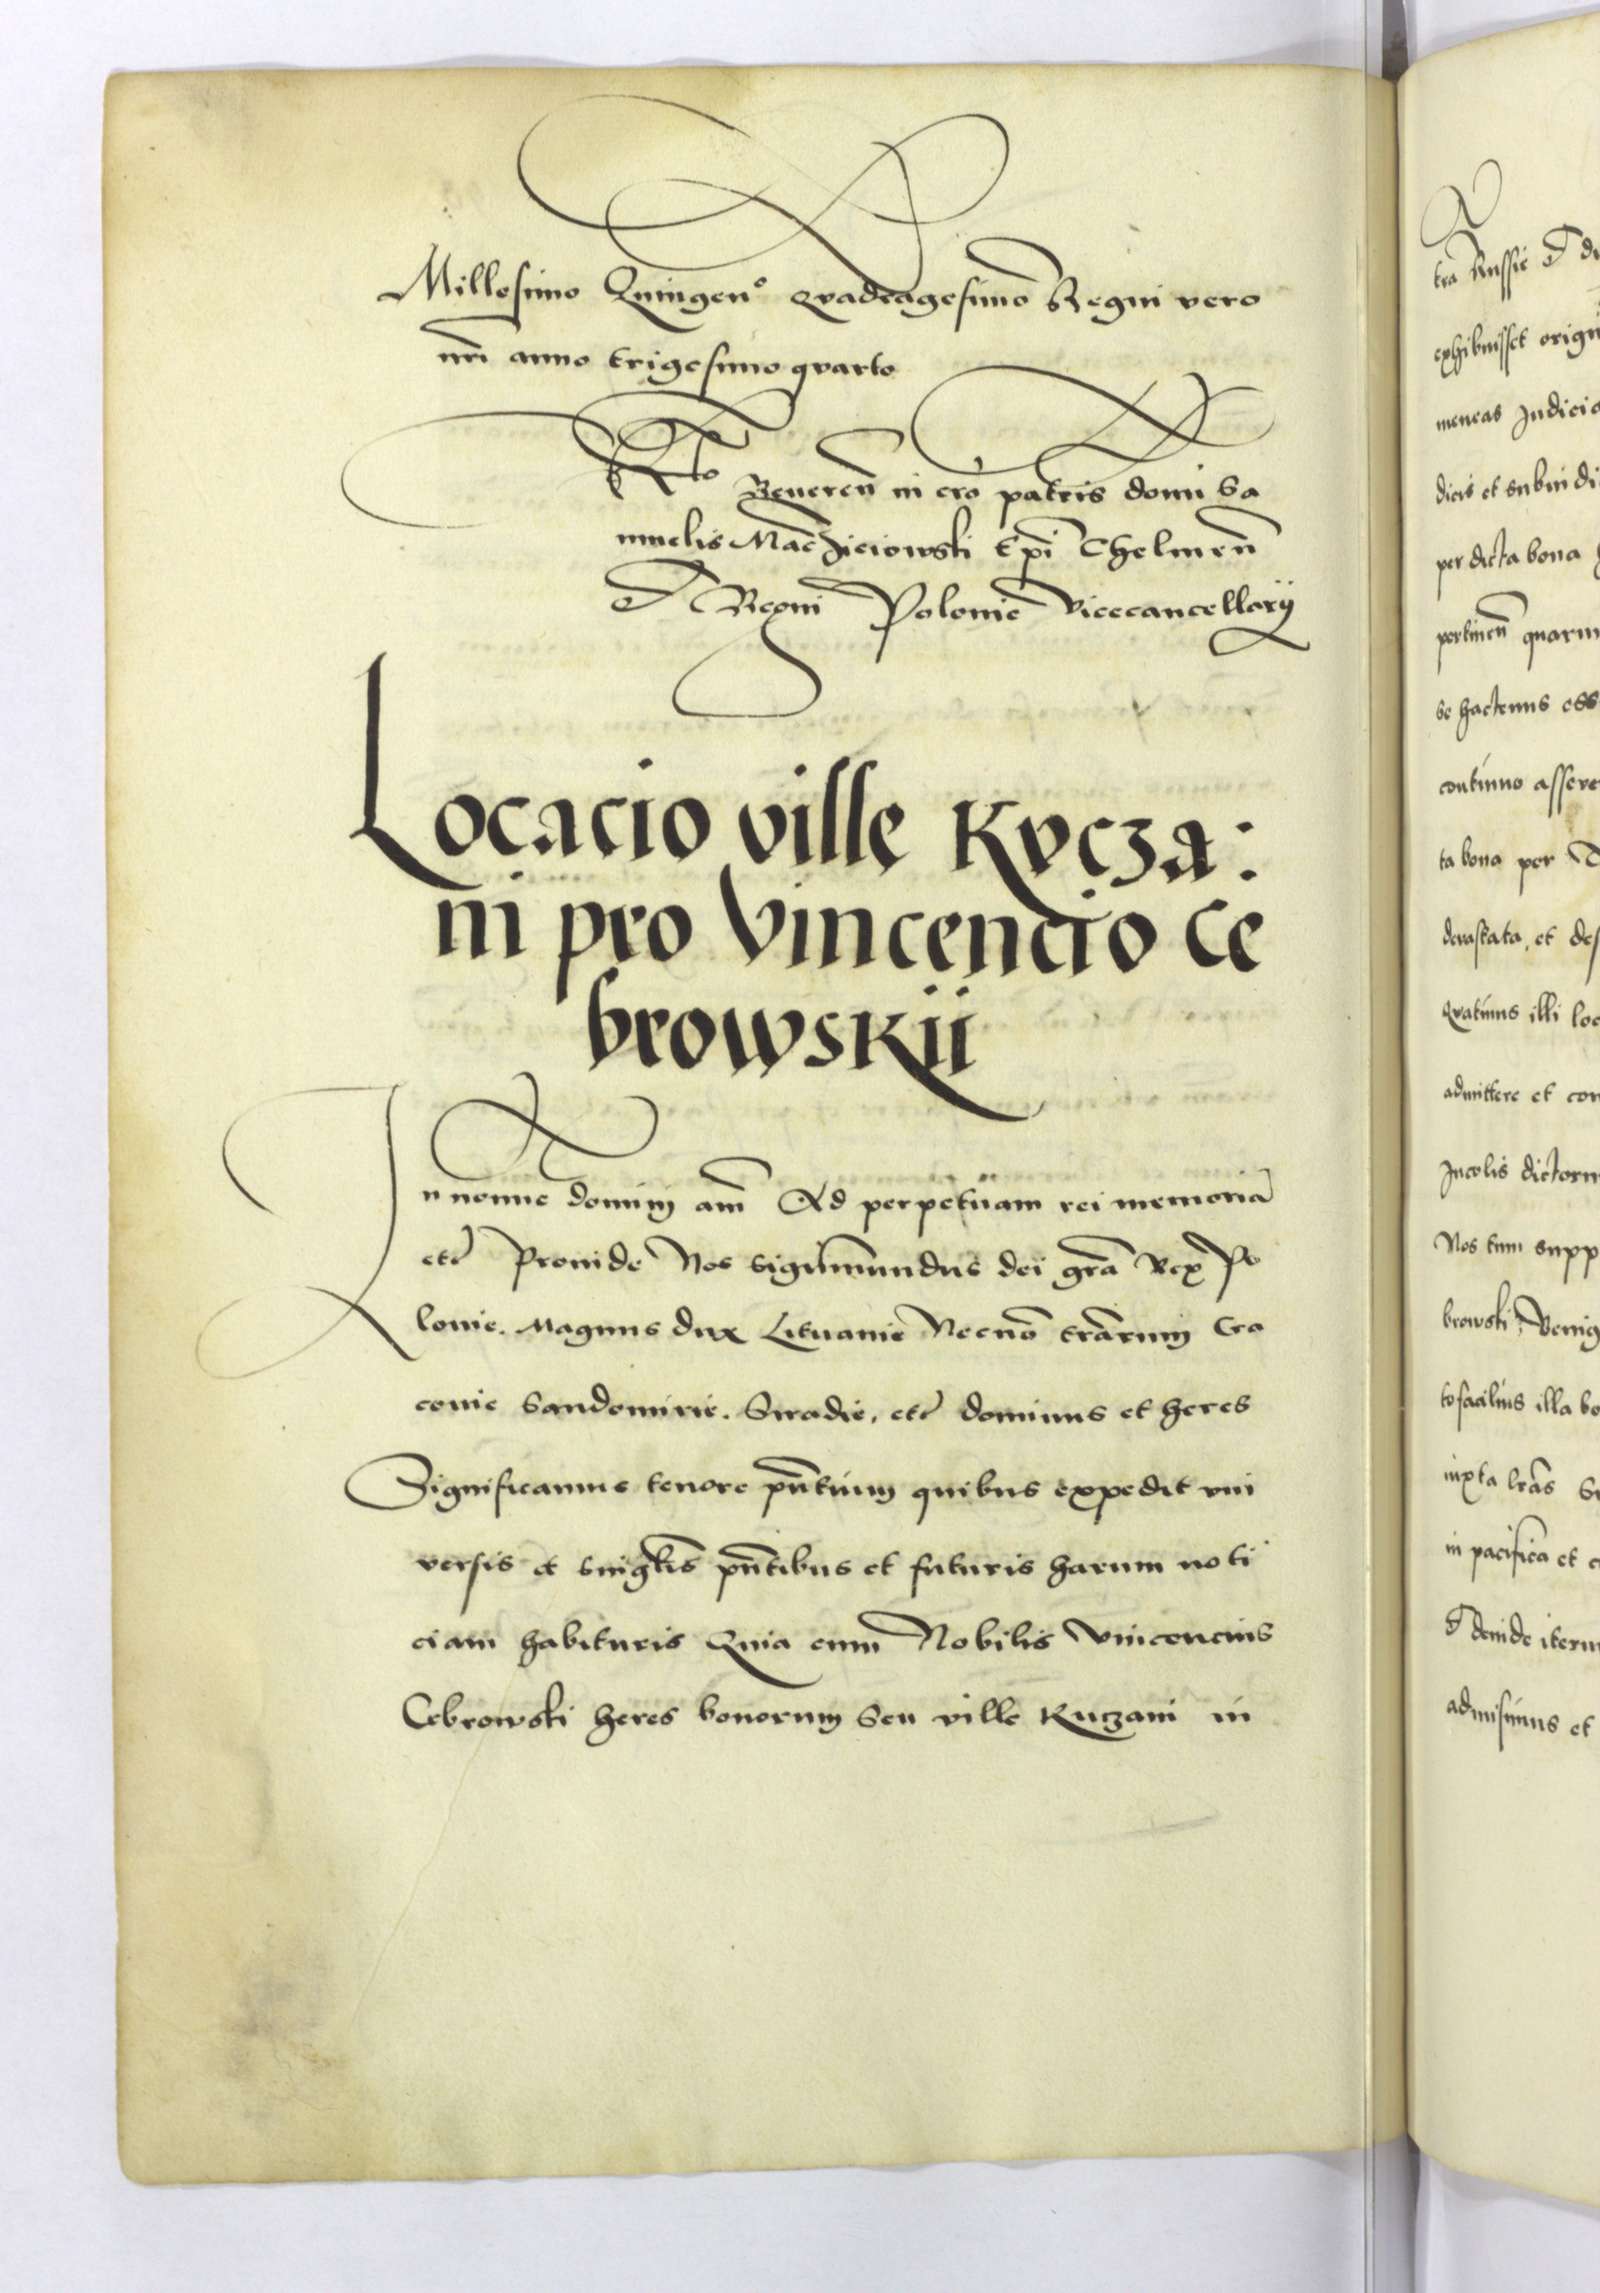 Millesimo Quingen° qvadragesimo Regni vero
nri anno trigesimo qvarto
Rto Reveren in cro patris domi Sa
muelis Maczieiowski Epi Chelmen
et Regni Polonie Vicecancellarij
Locacio ville Kvcza:
ni pro Vincencio Ce
browskii
In nomine domini am Ad perpetuam rei memoria
etc Proinde Nos Sigismundus dei gra Rex Po
lonie. Magnus dux Lituanie Necno trarum Cra
covie Sandomirie. Siradie, etc dominus et heres
Significamus tenore pntium quibus expedit vni
versis et singlis pntibus et futuris harum noti
ciam habituris Quia cum Nobilis Vincencius
Cebrowski heres bonorum seu ville Kuczani in
tra Russie et
exhibuisset
meneas Judici
dicis et subiudi
per dicta bona
pertinen quarum
se hactenus ess
continuo assere
ta bona per
devastata, et des
Qvatinus illi loc
admittere et con
Incolis dictorum
Nos tum supp
browski, Benig
to facilius illa bo
iuxta lras
in pacifica et
et deinde iterum
admisimus et